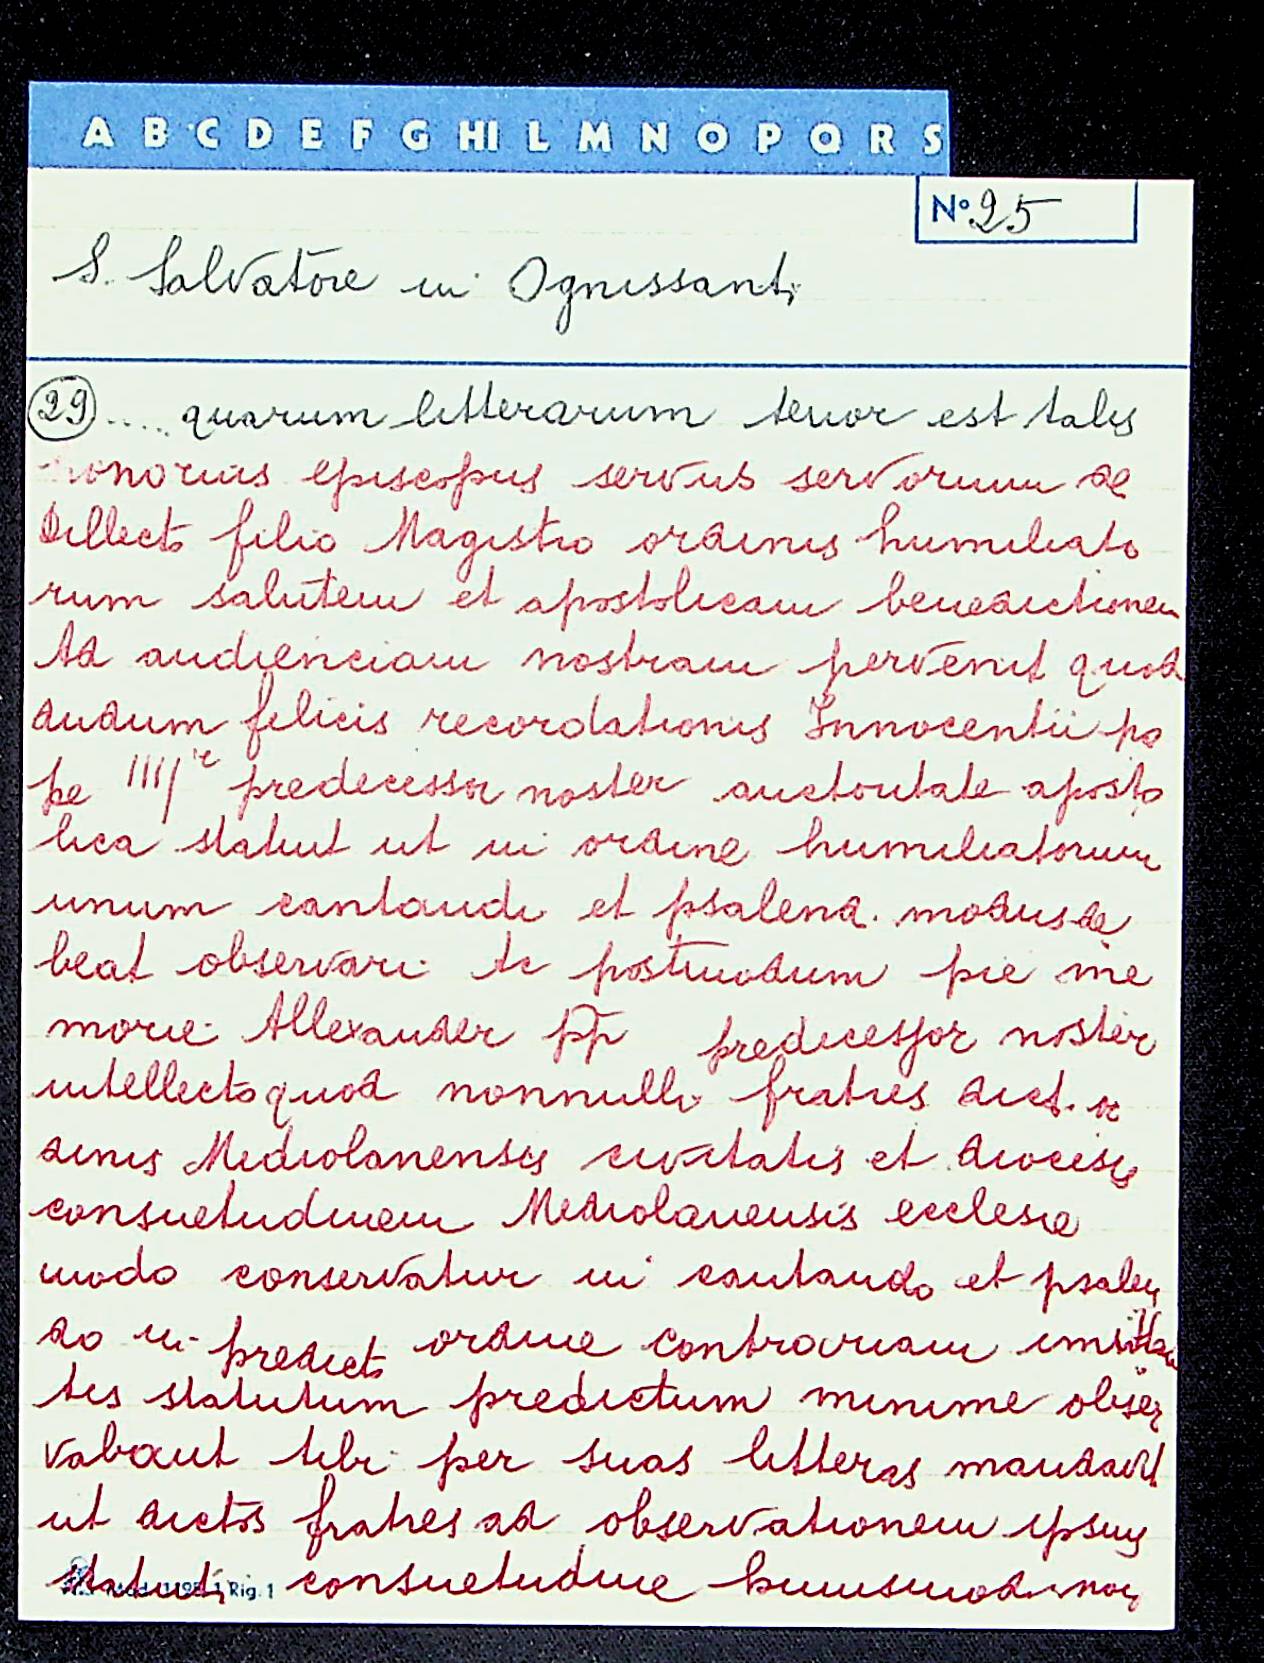 A B C D E F G HI L M N O P Q R S
N° 25
S. Salvatore in Ognissanti
29 .... quarum litterarum tenor est talis
honorius episcopus servus servorum de
Dillecto filio Magistro ordinis humiliato
rum salutem et apostolicam benedictionem
Ad audienciam nostram pervenit quod
dudum felicis recordationis Innocentii pa
pe IIIIte predecessor noster auctoritate aposto
lica statuit ut in ordine humiliatorum
unum cantandi et psalend. modus de
beat observari Ac postmodum pie me
morie Allexander pp predecessor noster
intellecto quod nonnulli fratres dict. or
dinis Mediolanensis civitatis et diocesis
consuetudinem Mediolanensis ecclesie
modo conservatur in cantando et psalen
do in predicto ordine contrariam imitan
tes statutum predictum minime obser
vabant tibi per suas litteras mandavit
ut dictos fratres ad observationem ipsius
statuti consuetudine huiusmodi non
Rig. 1